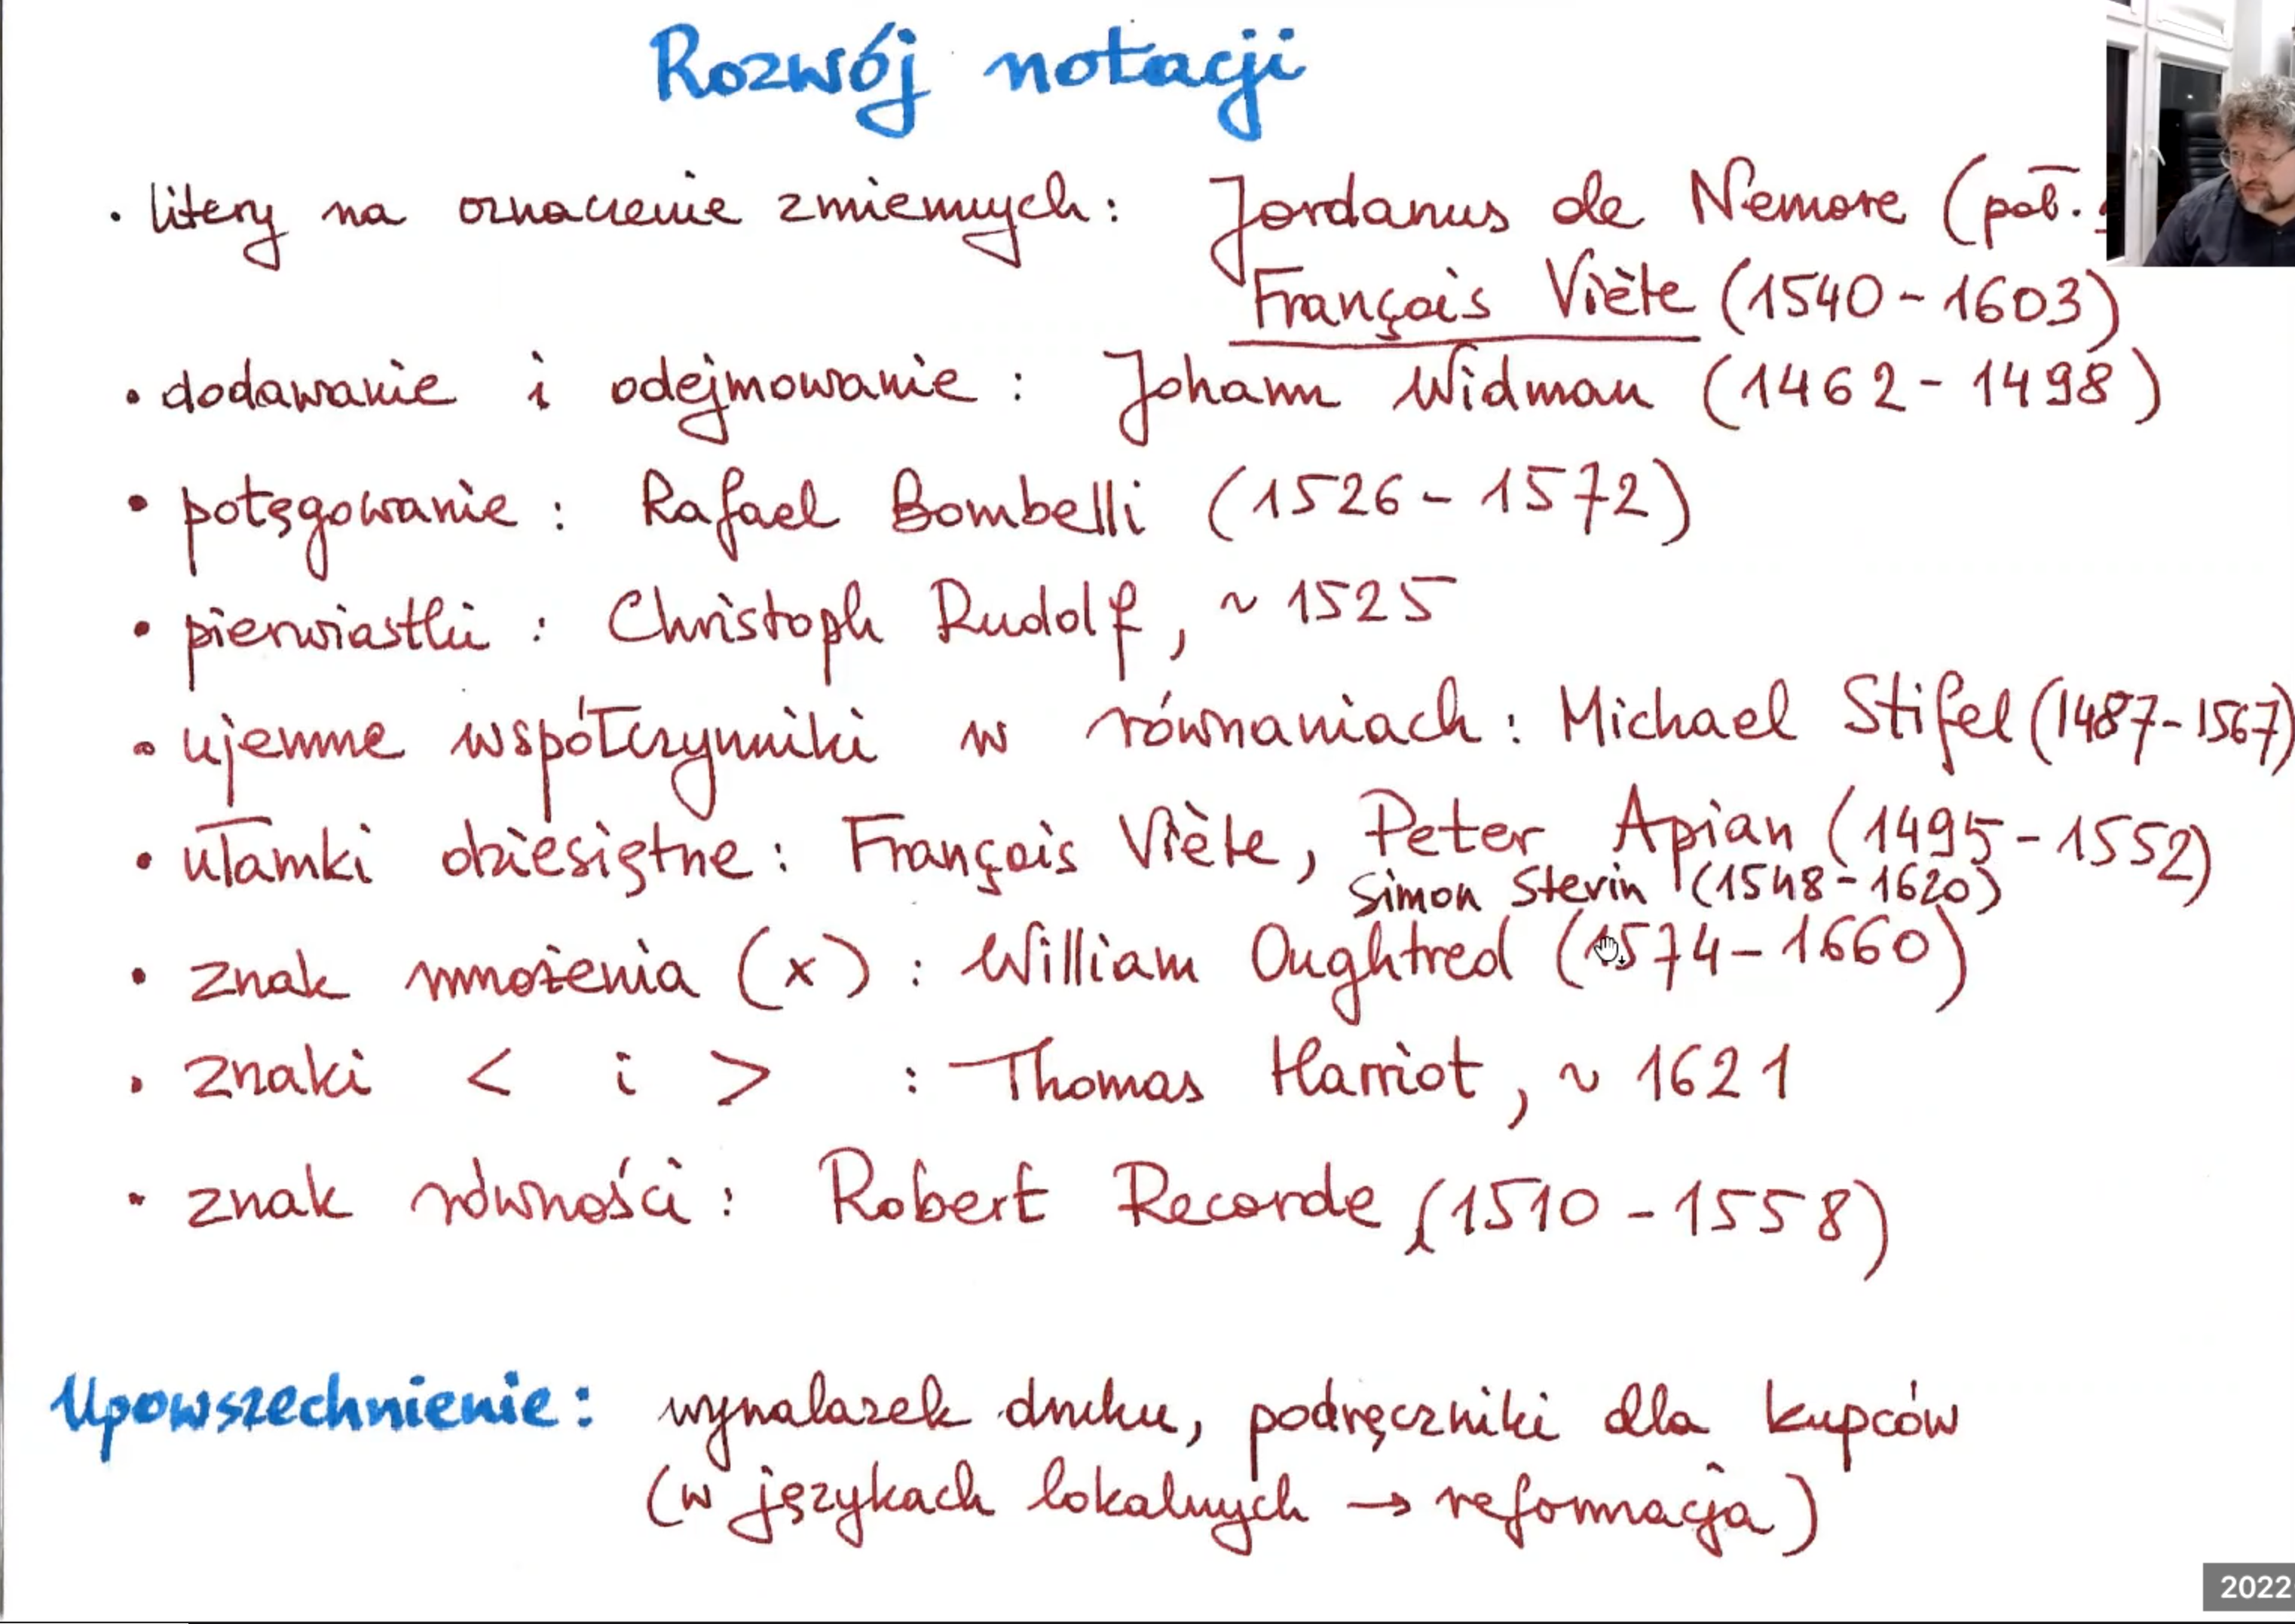 Rozwój notacji
• litery na oznaczenie zmiennych: Jordanus de Nemore (poł.
François Viète (1540-1603)
• dodawanie i odejmowanie: Johann Widman (1462-1498)
• potęgowanie: Rafael Bombelli (1526-1572)
• pierwiastki: Christoph Rudolf, ~ 1525
• ujemne współczynniki w równaniach: Michael Stifel (1487-1567)
• ułamki dziesiętne: François Viète, Peter Apian (1495-1552)
Simon Stevin (1548-1620)
• znak mnożenia (x): William Oughtred (1574-1660)
• znaki < i > : Thomas Harriot, ~ 1621
• znak równości: Robert Recorde (1510-1558)
Upowszechnienie: wynalazek druku, podręczniki dla kupców
(w językach lokalnych → reformacja)
2022